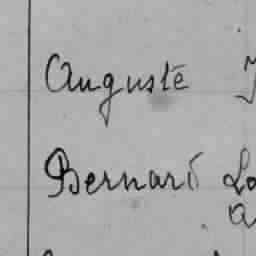 Auguste
Bernard